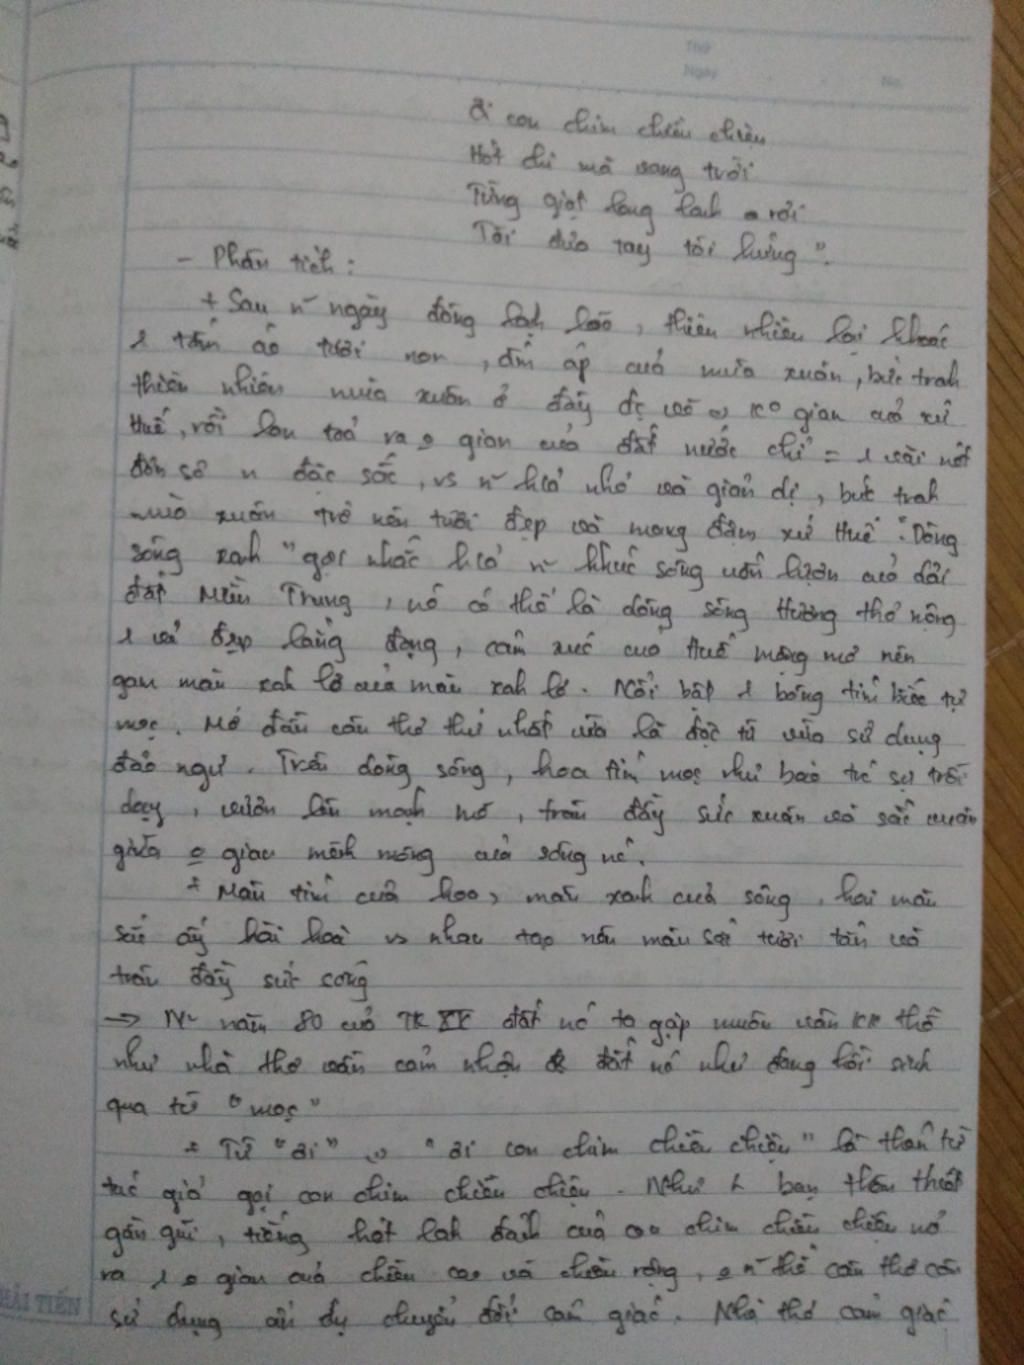 Thứ
Ngày
No.
Ơi con chim chiền chiện
Hót chi mà vang trời
Từng giọt long lanh rơi
Tôi đưa tay tôi hứng".
- Phân tích:
+ Sau n~ ngày đông lạnh lẽo, thiên nhiên lại khoác
1 tấm áo tươi non, ấm áp của mùa xuân, bức trah
thiên nhiên mùa xuân ở đây đc vẽ ko gian của xứ
Huế, rồi lan toả ra gian của đất nước chỉ = 1 vài nét
đơn sơ n đặc sắc, vs n~ h/ả nhỏ và giản dị, bức trah
mùa xuân trở nên tươi đẹp và mang đậm xứ Huế. "Dòng
sông xanh" gợi nhắc h/ả n~ khúc sông uốn lượn của dải
đất Miền Trung, nó có thể là dòng sông Hương thơ mộng
1 vẻ đẹp lắng đọng, cảm xúc của Huế mộng mơ nên
gam màu xah lơ của màu xah lơ. Nổi bật 1 bông tím biếc tự
mọc. Mở đầu câu thơ thứ nhất là độc từ vừa sử dụng
đảo ngữ. Trên dòng sông, hoa tím mọc như báo trc sự trỗi
dạy, vươn lên mạnh mẽ, tràn đầy sức xuân và sắc xuân
giữa gian mênh mông của sông nc.
+ Màu tím của hoa, màu xanh của sông, hai màu
sắc ấy hài hoà vs nhau tạo nên màu sắc tươi tắn và
tràn đầy sức sống
→ N~ năm 80 của TK XX đất nc ta gặp muôn vàn kk thế
như nhà thơ vẫn cảm nhận đc đất nc như đang hồi sinh
qua từ "mọc"
+ Từ "ơi" "ơi con chim chiền chiện" là thán từ
tác giả gọi con chim chiền chiện. Như 1 bạn thân thiết
gần gũi, tiếng hót lah của chim chiền chiện mở
ra 1 gian của chiều cao và chiều rộng, thế câu thơ còn
sử dụng ẩn dụ chuyển đổi cảm giác. Nhà thơ cảm giác
HẢI TIẾN